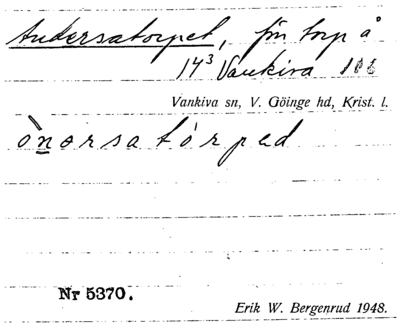 Andersatorpet, för torp å
14³ Vankiva 106
Vankiva sn, V. Göinge hd, Krist. l.
ànərsatórpəd
Nr 5370.
Erik W. Bergenrud 1948.